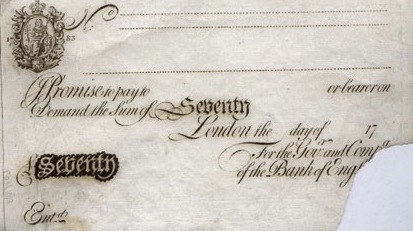 No
I Promise to pay to or bearer on
Demand the Sum of Seventy
London the day of 17
For the Govr. and Compa.
of the Bank of Eng
Seventy
Entd.